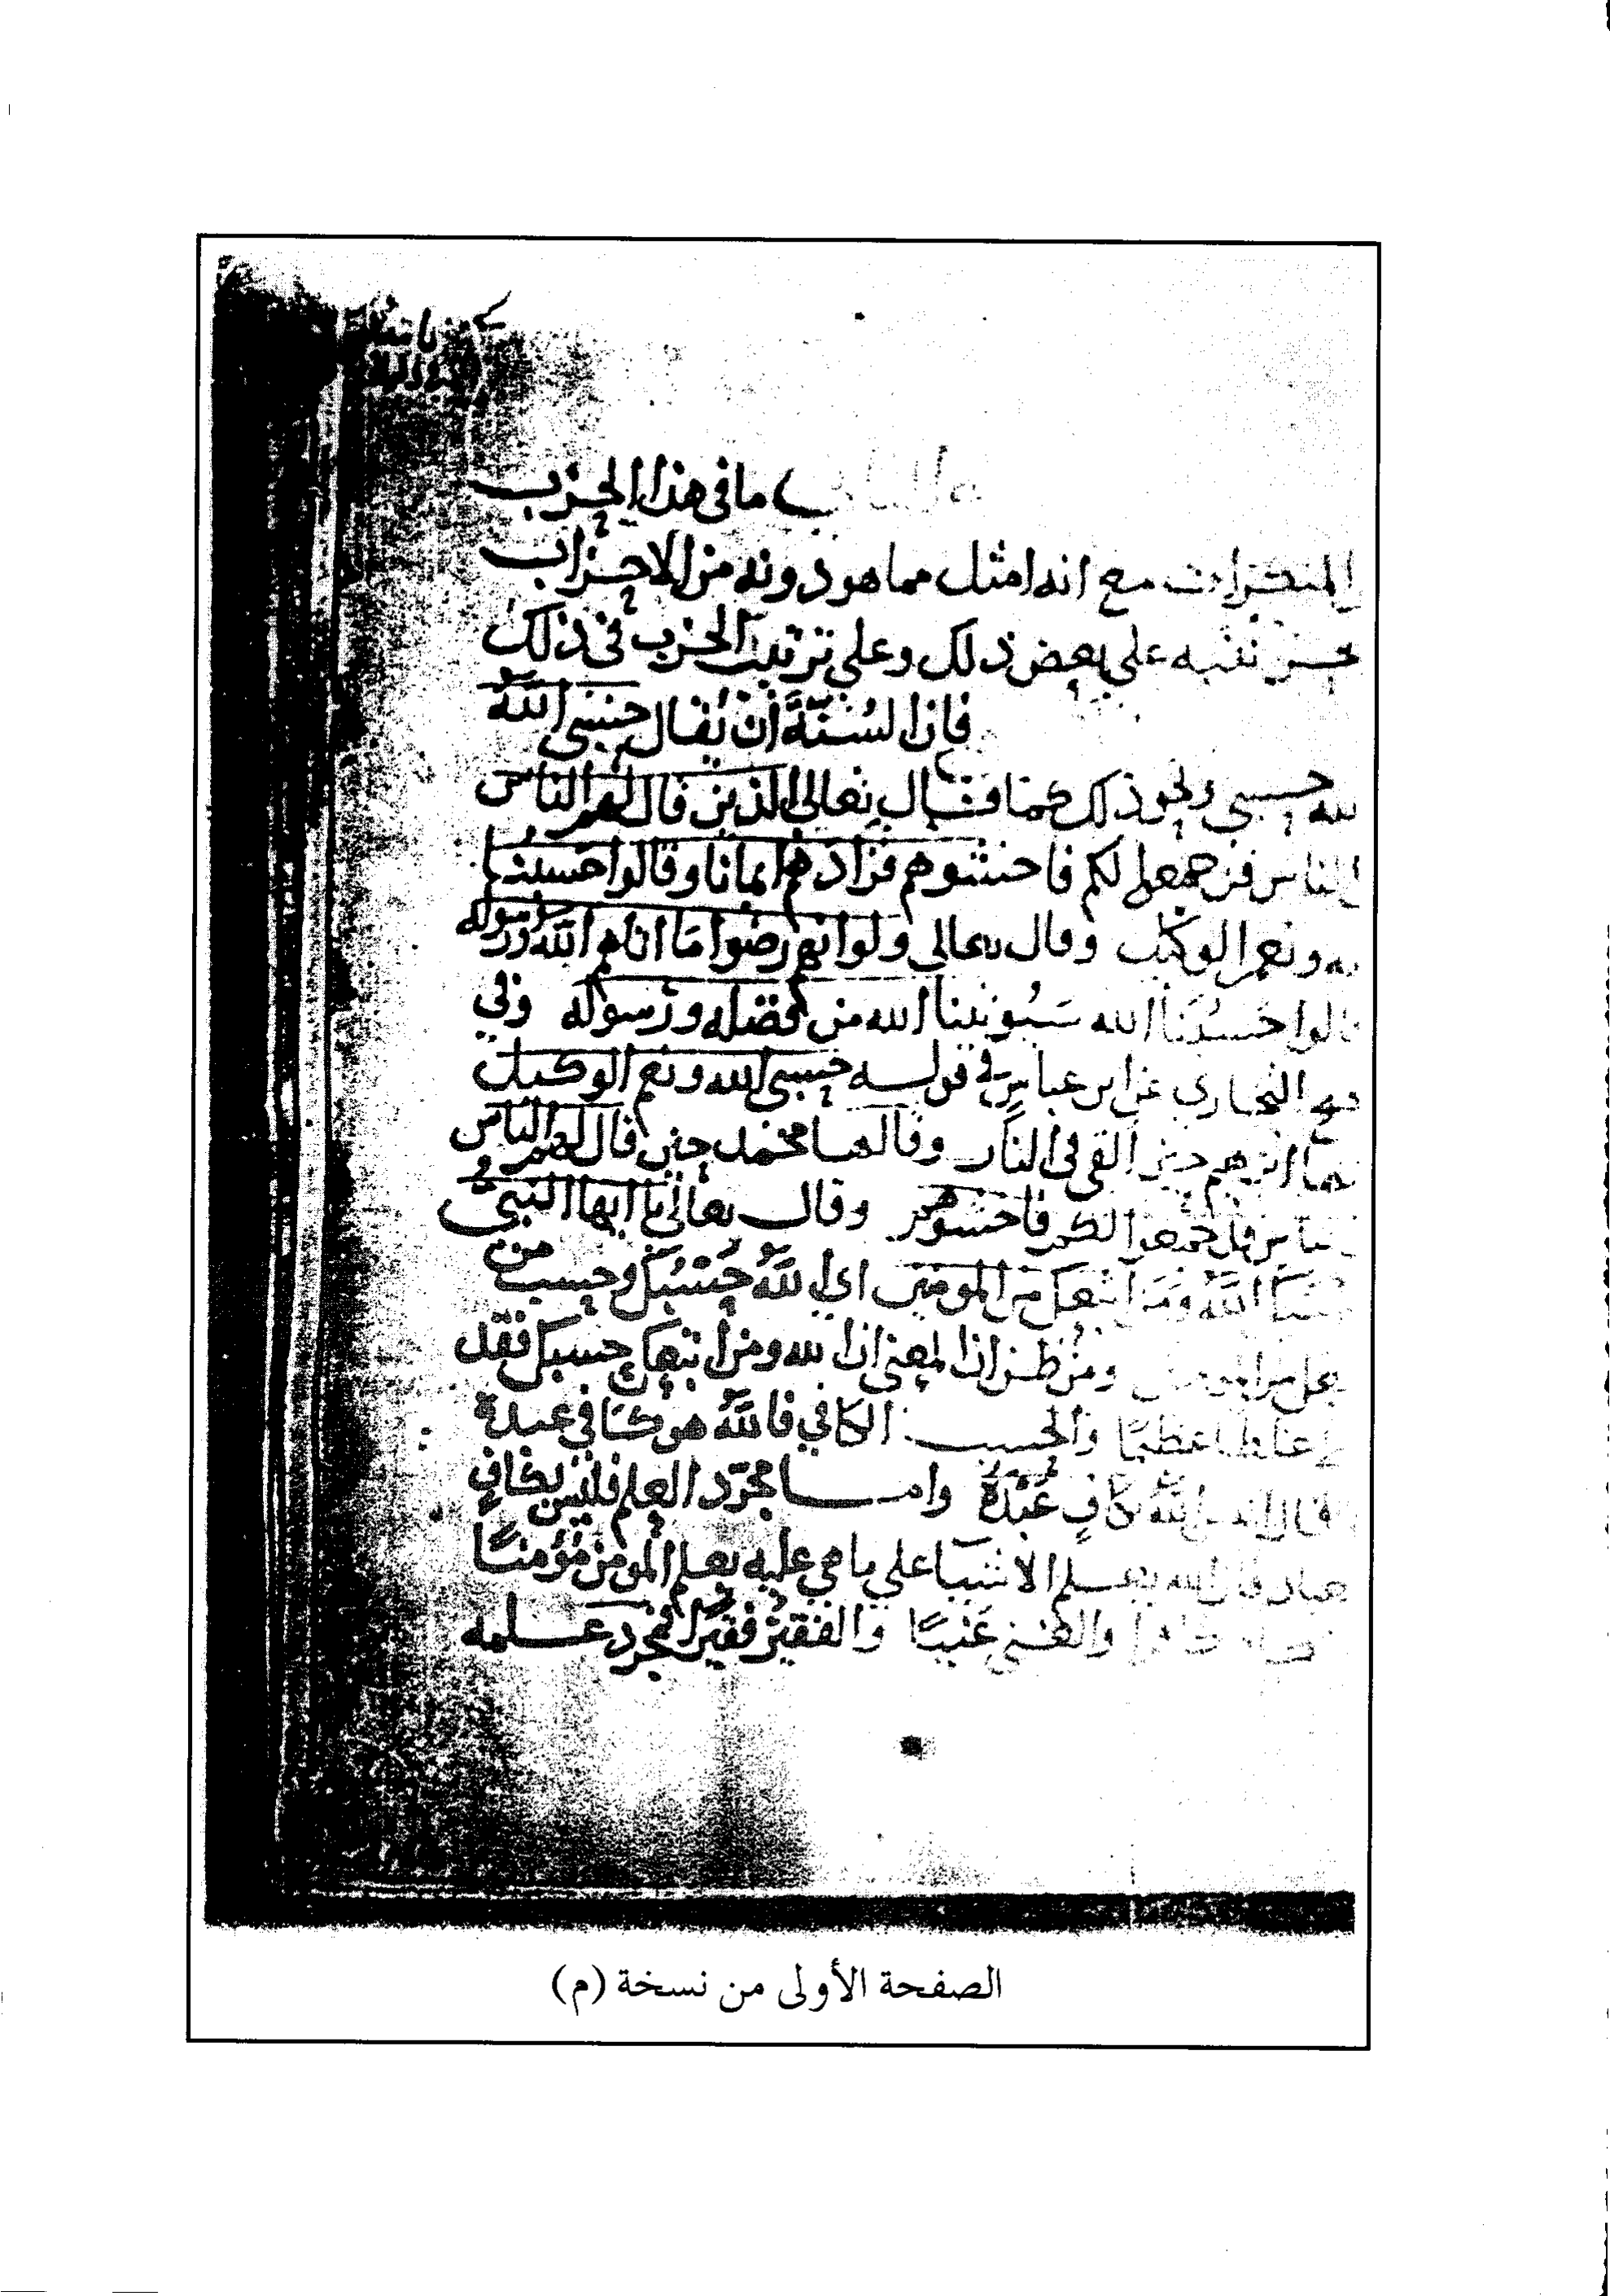 ما في هذا الحزب
المنكرات مع انه امثل مما هو دونه من الاحزاب
نحن ننبه على بعض ذلك وعلى ترتيب الحزب في ذلك
فان السنة أن يقال حسبي الله
الله حسبي ونحو ذلك كما قال تعالى الذين قال لهم الناس
الناس قد جمعوا لكم فاخشوهم فزادهم ايمانا وقالوا حسبنا
ونعم الوكيل وقال تعالى ولو انهم رضوا ما اتاهم الله ورسوله
قالوا حسبنا الله سيؤتينا الله من فضله ورسوله وفي
البخاري عن ابن عباس في قوله حسبي الله ونعم الوكيل
ابراهيم حين القي في النار وقالها محمد حين قال لهم الناس
جمعوا لكم فاخشوهم وقال تعالى يا ايها النبي
الله ومن اتبعك من المومنين اي الله حسبك وحسب من
ومن ظن ان المعنى ان الله ومن اتبعك حسبك فقد
غلط غلطا عظيما والحسب الكافي فالله هو كافي عبده
الله كاف عبده واما مجرد العلم فليس بكاف
الله يعلم الاشيا على ما هي عليه يعلم المومن مؤمنا
والغني غنيا والفقير فقيرا فمجرد علمه
الصفحة الأولى من نسخة (م)